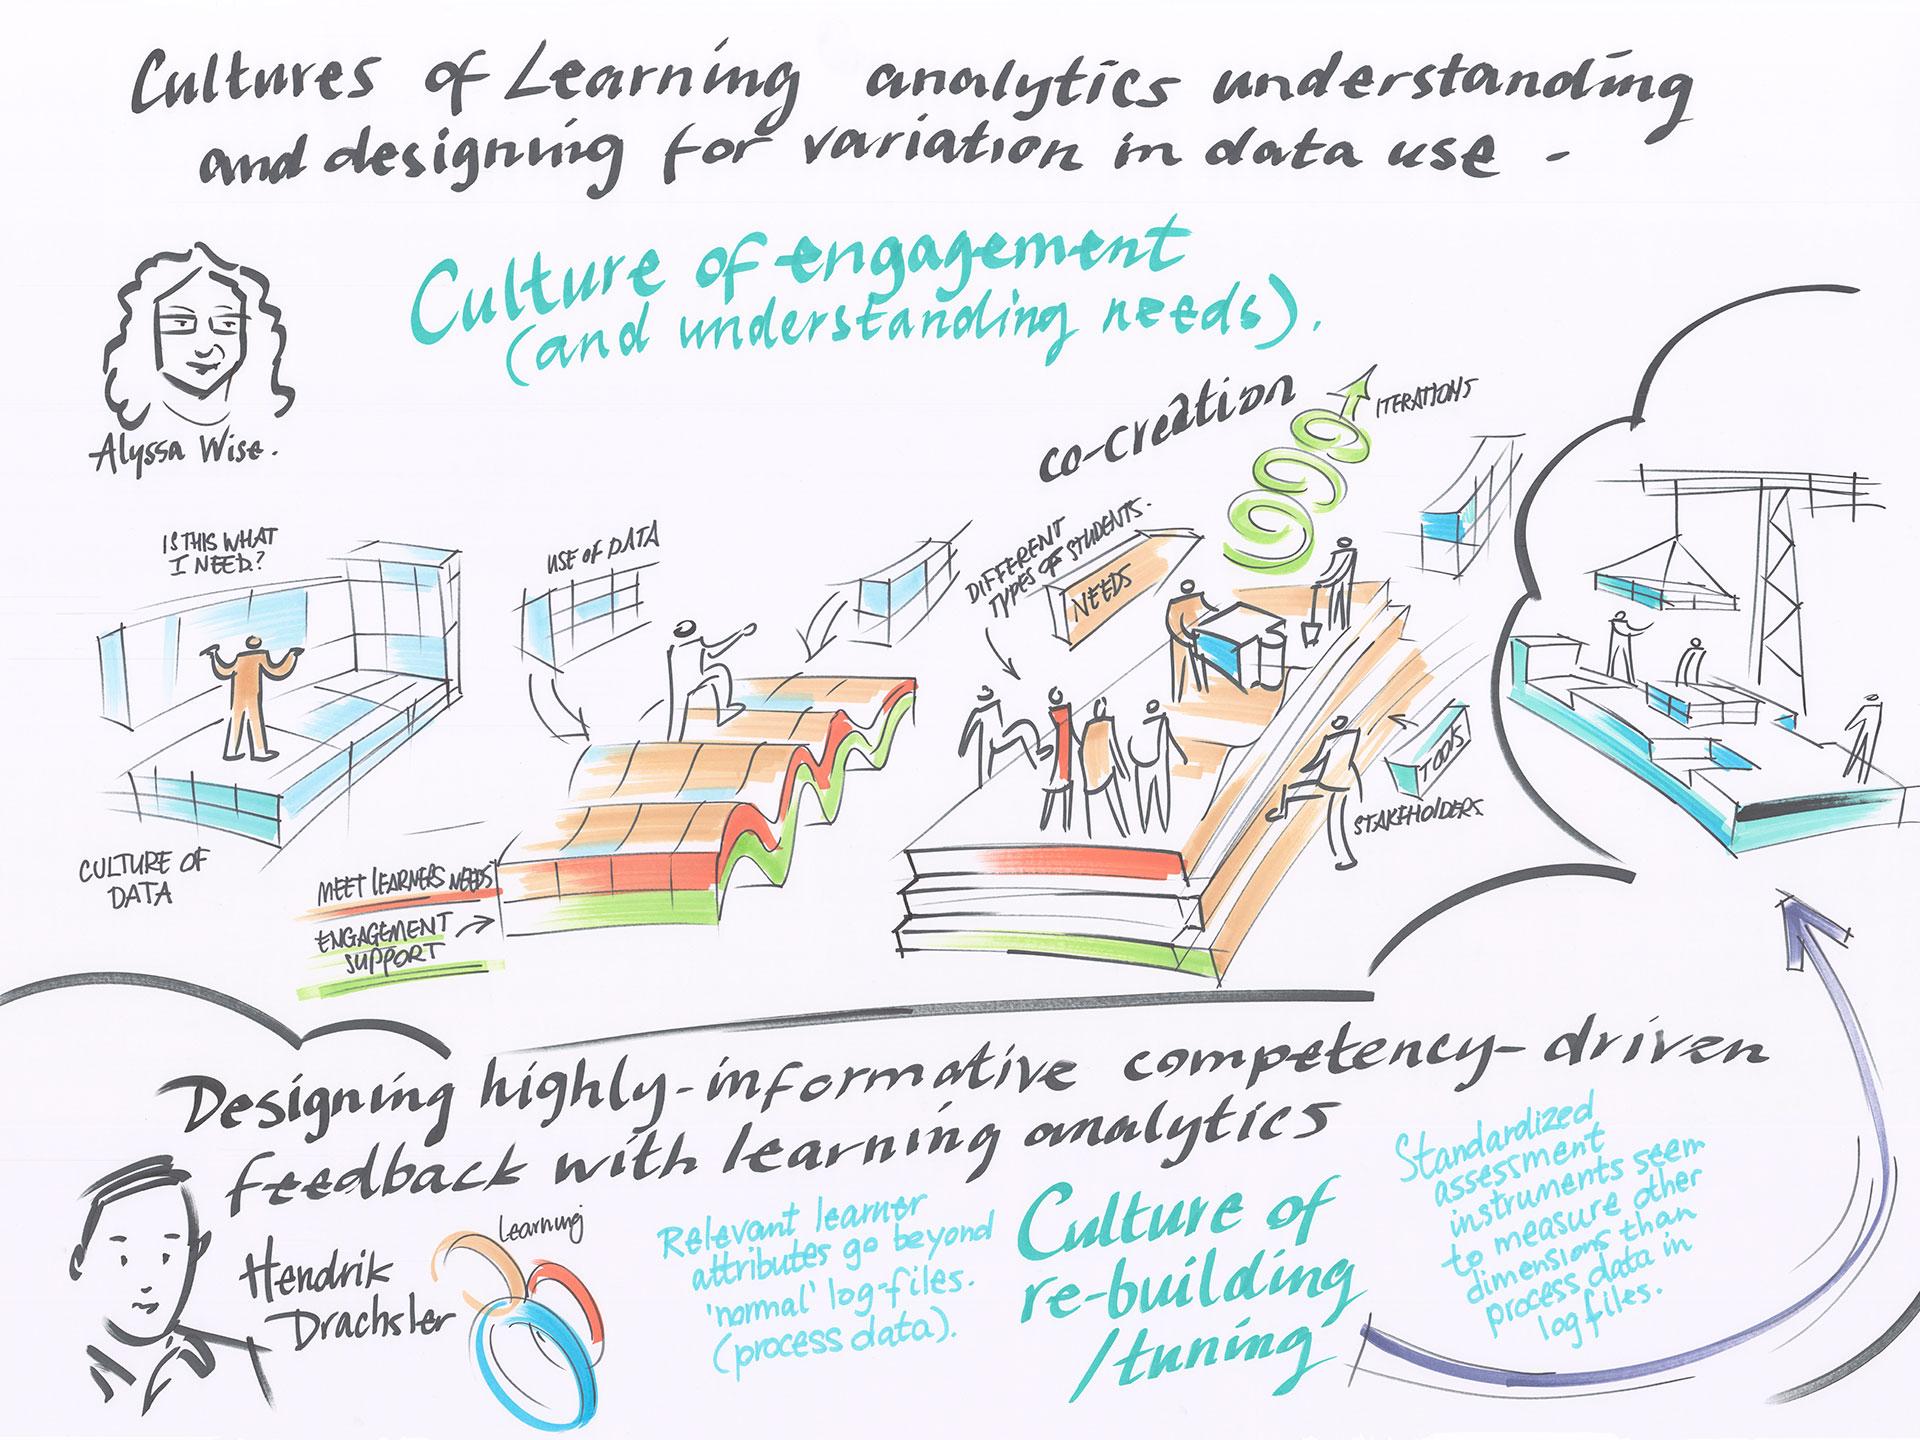 Cultures of Learning analytics understanding
and designing for variation in data use -
Culture of engagement
(and understanding needs).
Alyssa Wise.
co-creation
ITERATIONS
IS THIS WHAT
I NEED?
USE OF DATA
DIFFERENT
TYPES OF STUDENTS.
NEEDS
TOOLS
STAKEHOLDERS
CULTURE OF
DATA
MEET LEARNERS NEEDS
ENGAGEMENT
SUPPORT
Designing highly-informative competency-driven
feedback with learning analytics
Hendrik
Drachsler
Learning
Relevant learner
attributes go beyond
'normal' log-files.
(process data).
Culture of
re-building
/tuning
Standardized
assessment
instruments seem
to measure other
dimensions than
process data in
log files.